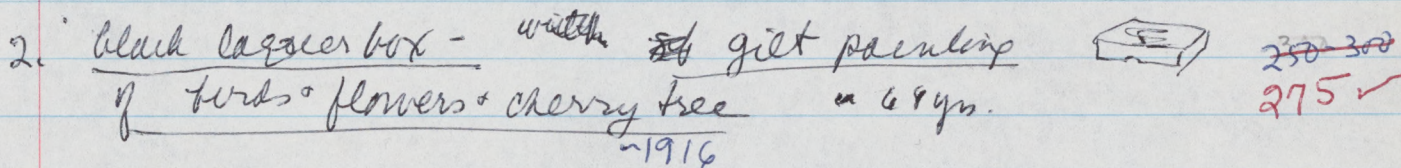 2. black laquer box - with gilt painting 250-300
of birds + flowers + cherry tree 69 yrs. 275 ✓
~1916